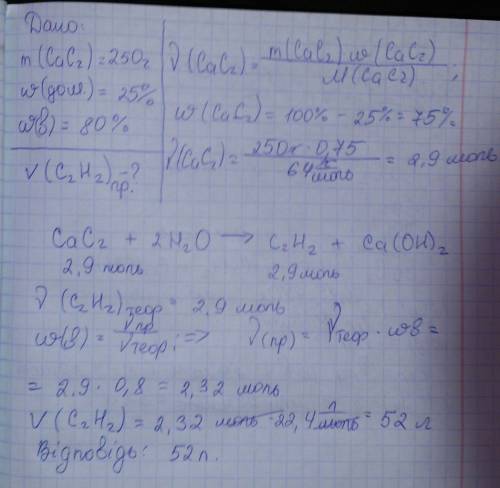 Дано:
m(CaC₂)=250г
w(дом.)=25%
w(в)=80%
V(C₂H₂)пр.-?
ν(CaC₂)=m(CaC₂)·w(CaC₂)/M(CaC₂);
w(CaC₂)=100%-25%=75%
ν(CaC₂)=250г·0,75/64 г/моль=2,9 моль
CaC₂ + 2H₂O → C₂H₂ + Ca(OH)₂
2,9 моль 2,9 моль
ν(C₂H₂)теор=2,9 моль
w(в)=νпр/νтеор. => ν(пр)=νтеор·wв=
=2,9·0,8=2,32 моль
V(C₂H₂)=2,32 моль·22,4 л/моль=52 л
Відповідь: 52л.